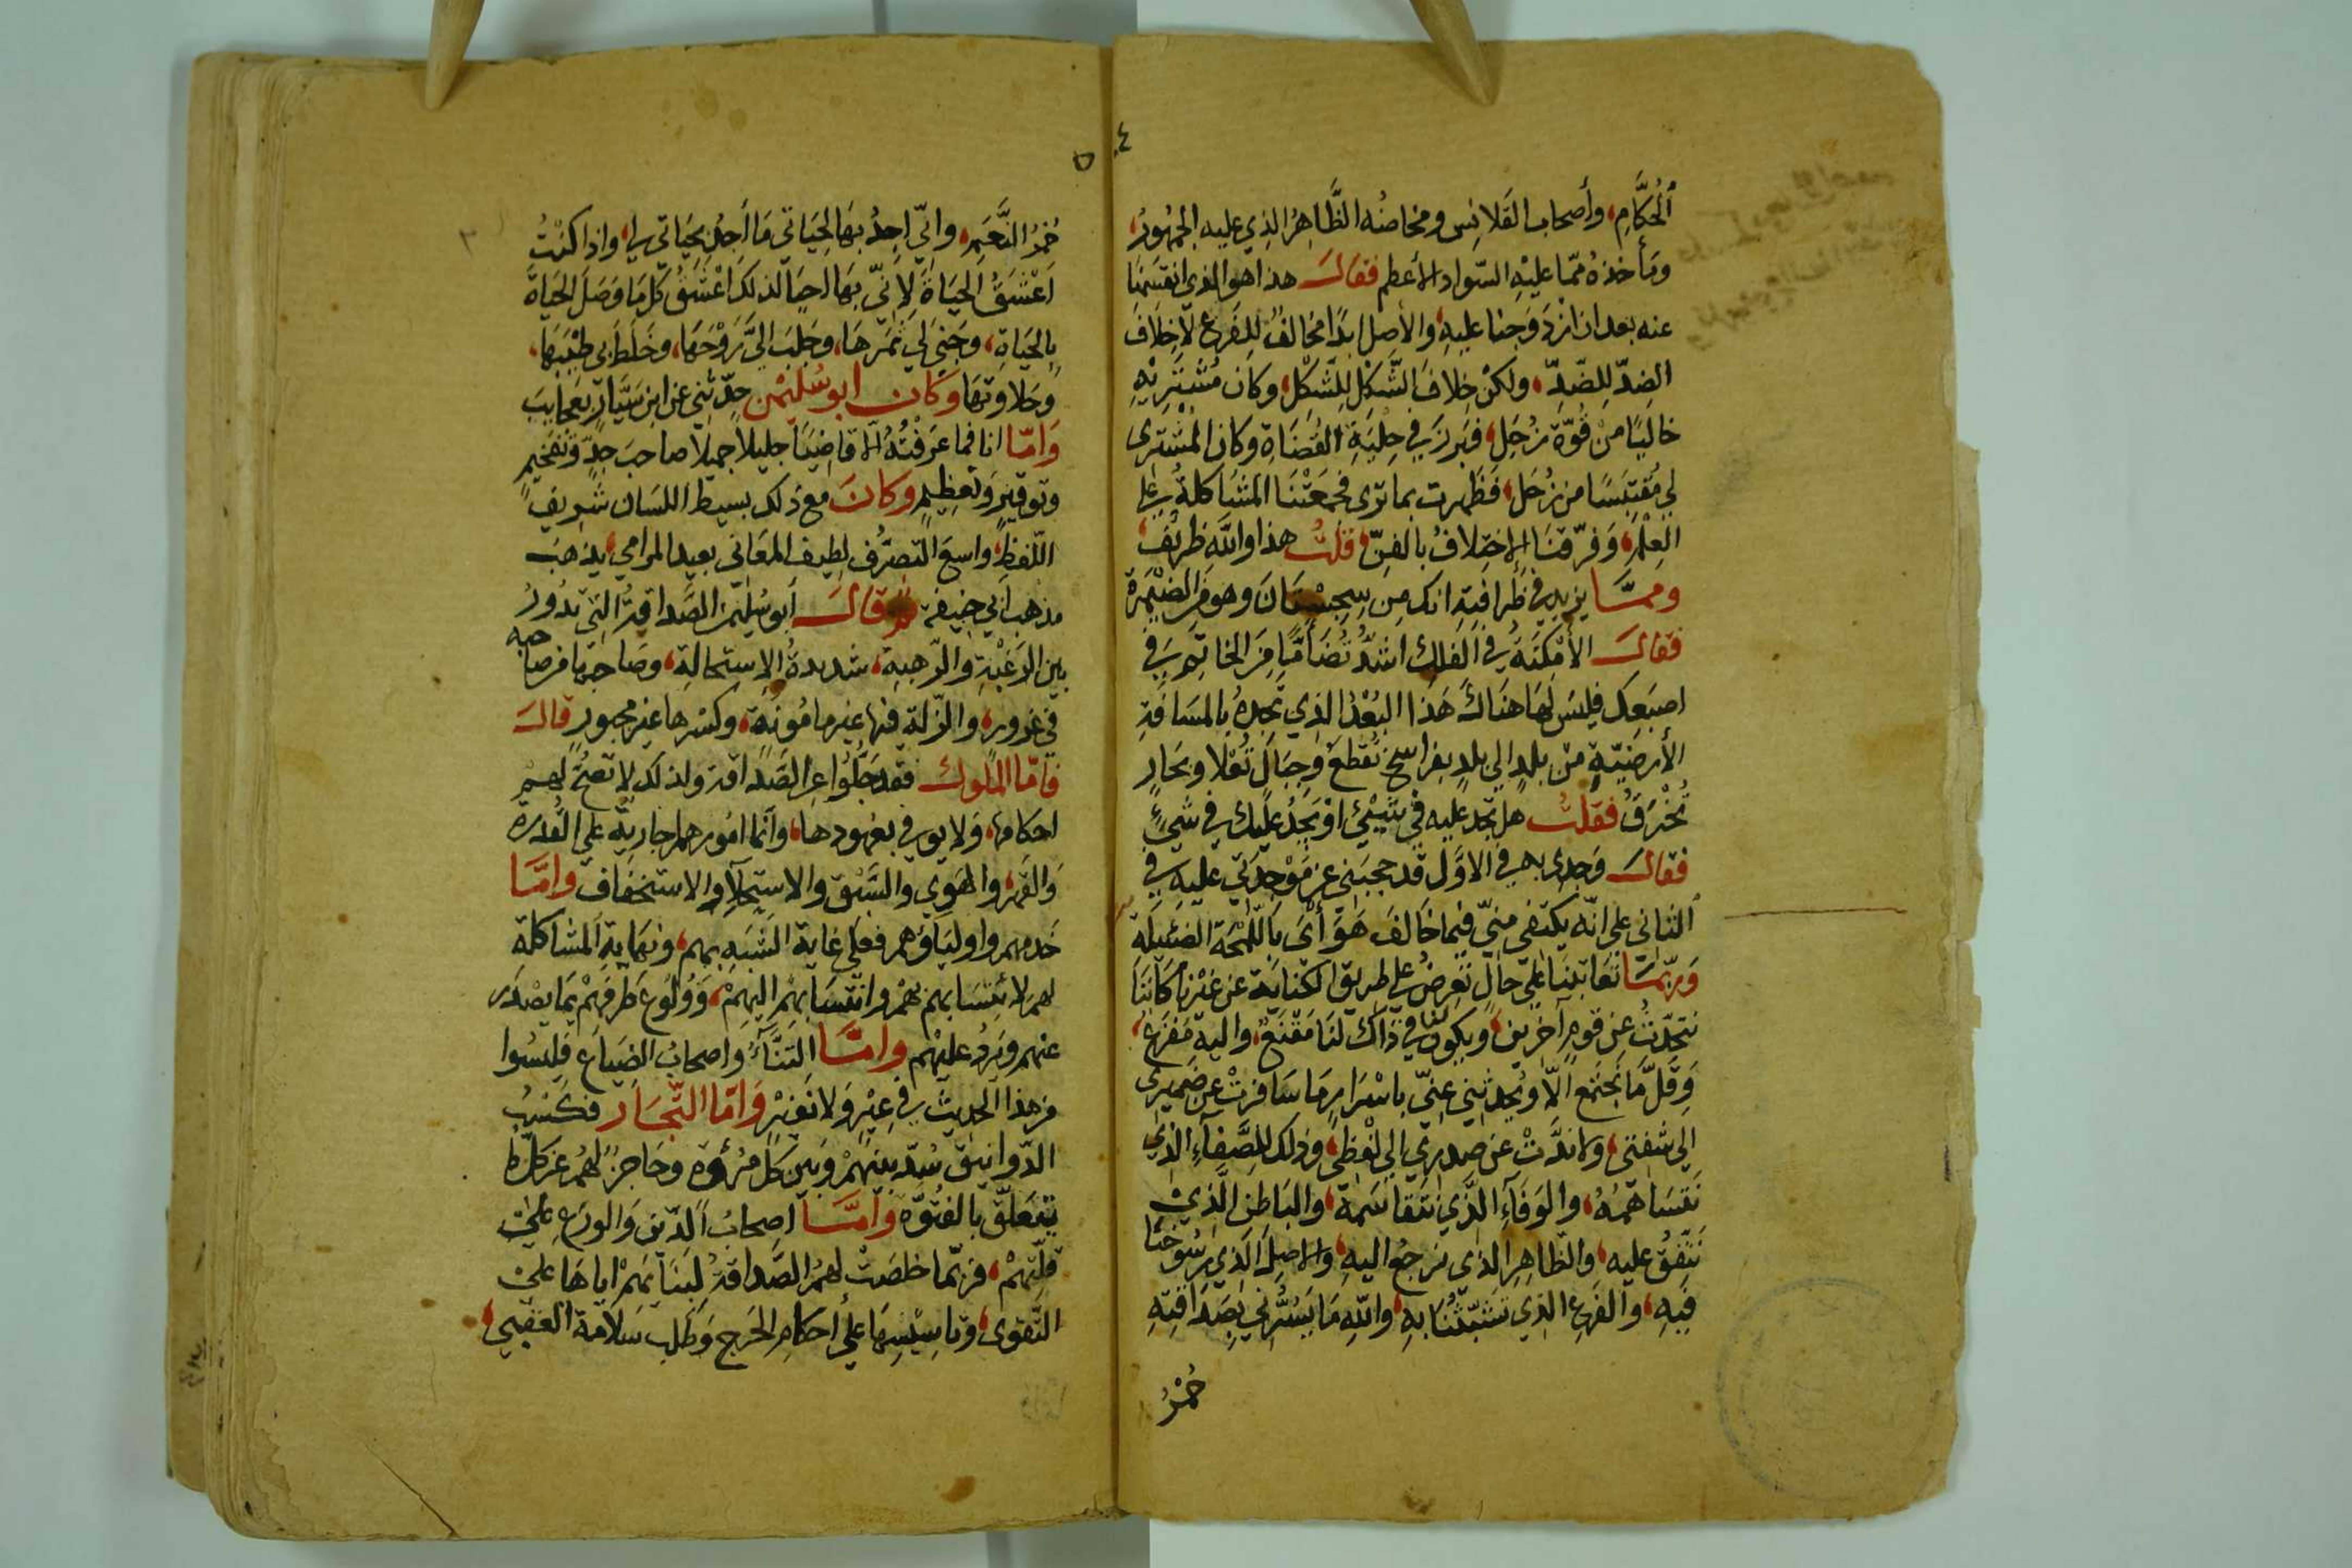 ٤
الحُكَّامِ، وأصحاب القَلانِس ومخاصُه الظَّاهِرُ الذي عليه الجُمْهُورُ،
ومأخذهُ ممّا عليْهِ السّواد الأعظم فقال هذا هو الذي انقسمنا
عنه بعد ان ازدَوَجنا عليهِ، والأصل ابدًا مخالفٌ لِلفَرع لاخِلافَ
الضِدّ لِلضّدِّ، ولكنْ خِلافَ الشَّكْل لِلشَّكْل، وكان مُشْتَريْهِ
خاليًا منْ قُوَّة زُحَل، فبرزَ في حِليَةِ القُضَاةِ وكان المُشْتري
لي مُقتبَسًا من زُحَل، فظهرت بما ترى فجمعَتْنَا المشَاكلةُ على
العِلْمِ، وَفرّقنَا الإختِلافُ بالفنّ، قلتُ هذا واللهِ ظريْفٌ،
وممَّا يزيد في ظَرافتِهِ انك من سِجِسْتَانَ وهو من الصَّيْمَرَة
فقال الأمْكنَةُ في الفلك اشدُّ تَضَامًّا من الخاتَمِ في
اصبعك فليسَ لهَا هنَاكَ هَذا البُعْدُ الذي تجِدُهُ بالمسَافَةِ
الأرضيّةِ منْ بلدٍ الي بلدٍ بفراسخ تُقطعُ وجبَال تُعْلا وبحَارٍ
تُخْرَقُ فقلتُ هل تجد عليهِ في شَيْئٍ اوْ يَجِدُ عليكَ في شيءٍ
فقال وَجدي به في الاوَّل قد حجبَني عن مَوْجِدَتي عليهِ في
الثاني علي انّه يكتفي منّي فيما خَالفَ هَوَايَ باللّمْحَة الضئيلَةِ
وَربّمَا تعَاتبنَا علي حالٍ تَعرِضُ علي طريق الكنايَة عن غيْرنَا كأننَا
نتحدّثُ عن قومٍ آخَرين، ويكون لنا في ذاك لنَا مَقْنَعٌ، واليهِ مَفزَعٌ،
وَقلَّ مَا نَجتَمعُ الّا ويُحدثني عنّي باسْرَارٍ مَا سَافرتْ عن ضَميري
الي شفتي، ولا ندَّتْ عن صدري الي لفظي، وذلك للصَّفآءِ الذي
نَتقسَاهمُهُ، والوَفآءِ الَّذي نتَقاسَمهُ، والباطن الَّذيْ
نَتّفِقُ عليهِ، والظاهِرِ الذي نرجعُ اليهِ، والاصلِ الذي رسُوخنَا
فيهِ، والفَرعِ الذي تَشبّثنَا بهِ، واللهِ مَا يسُرُّني بصَدَاقتِهِ
حُمْرُ
٥
حُمرُ النَّعَمِ، وانّي اجِدُ بهَا لِحيَاتي مَا أجِدُ بحيَاتي لي، واذا كنْتُ
اَعْشَقُ الحيَاةَ لِأنّي بهَا احيَا لذلكَ اعْشَقُ كلّ مَا وَصَلَ الحيَاةَ
بالحَيَاةِ، وجَنَي لي ثمَرَهَا، وجَلَبَ اليَّ رَوْحَهَا، وخَلَطَ بي طيْبَهَا،
وحَلاوتَهَا وكان ابو سُليْمٰن حدّثني عن ابن سَيَّارٍ بعَجايبَ
وَامّا انا فما عَرَفْتُهُ الّا قاضيًا جليلاً جميلاً صاحبَ جِدٍّ وتَفخيمٍ
وتوقيرٍ وتعظيمٍ وكانَ مع ذلك بسيط اللسَان شَريفَ
اللّفظِ، واسعَ التصرُّف لطيف المعَاني بعيد المرامي، يذهَبُ
مذهب أبي حنيفة وقال أبو سُليْمٰنَ الصَّداقةُ التي تدُورُ
بين الرَغبَةِ والرّهبةِ، شديدةُ الإستحالةِ، وصَاحبُهَا من صاحبه
في غرورٍ، والزّلة فيها غير مامُونةٍ، وكسْرها غير مجبورٍ قال
فامّا المُلوك فقد جَلُّوا عن الصَّداقة ولذلك لا تصحّ لهُمْ
احكامها، ولا يوفي بعهودها، وانما امُورهم جاريةٌ علي القُدرة
والقهر، والهَوي والشَّبْق والاستحلآءِ والاستخفَاف وامَّا
خَدمهم واوليَاؤهم فعَلي غاية الشَّبَهِ بهم، ونهَايةِ المشَاكلة
لهم، لانتشَابهم بهم وانتسَابهم اليهم، وَوُلُوع طرفهِمْ بمَا يصْدُر
عنهم ويَردُ عليْهم وامَّا التنّآءُ واصحابُ الضيَاع فليسُوا
من هذا الحديث في عيْرٍ وَلا نفيْرٍ وَامّا التّجَار فكسْبُ
الدّوانيق سُدّ بينهُمْ وبَين كلّ مرُؤةٍ وحَاجزٌ لهُمْ عن كلّ ما
يتعَلّق بالفتُوّة وامَّا اصحابُ الدّين وَالورَع علي
قلّتهمْ، فربّما خلصَتْ لهُمُ الصَّداقةُ لبنَائهمْ اياهَا علي
التّقوى، وتاسِيْسِهَا علي احكام الحَرج وَطلب سَلامَة العقبي،